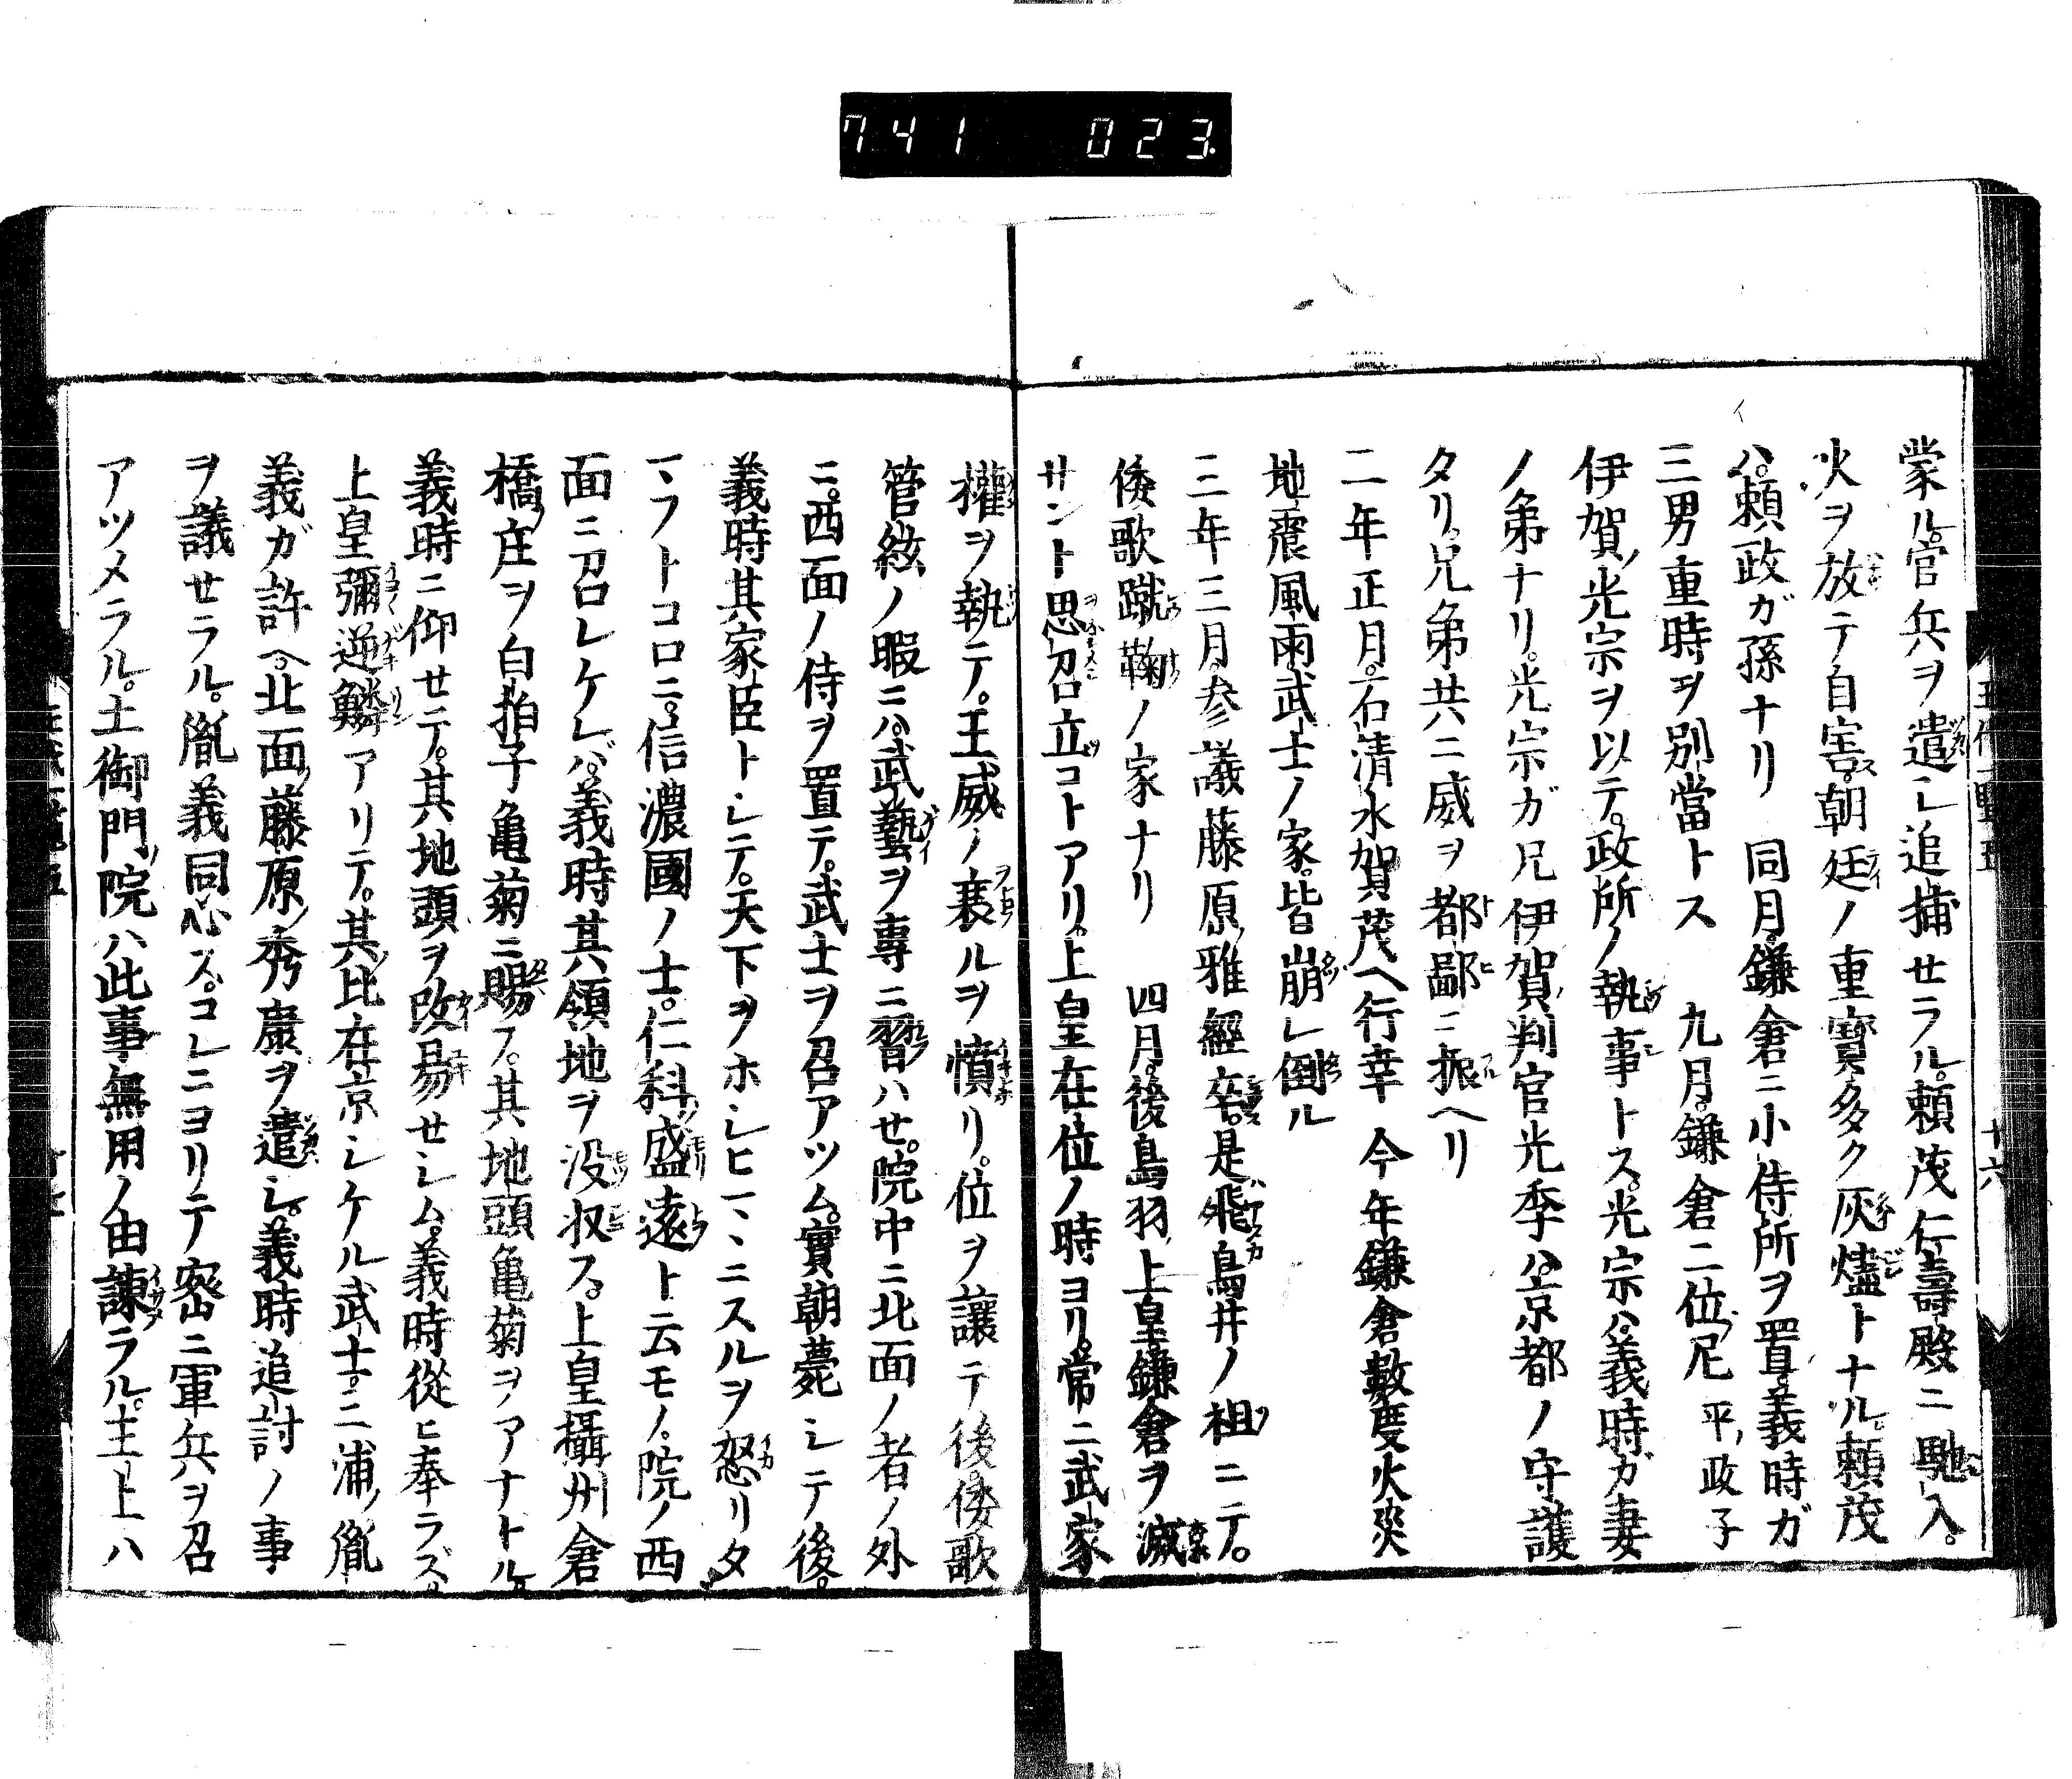 741 023
蒙ル。官兵ヲ遣シ追捕セラル。頼茂仁壽殿ニ馳入。
火ヲ放テ自害ス。朝廷ノ重寳多ク灰燼トナル。頼茂
ハ。頼政ガ孫ナリ 同月。鎌倉ニ小侍所ヲ置。義時ガ
三男重時ヲ別當トス 九月。鎌倉二位尼平政子
伊賀光宗ヲ以テ。政所ノ執事トス。光宗ハ。義時ガ妻
ノ弟ナリ。光宗ガ兄伊賀判官光季ハ。京都ノ守護
タリ。兄弟共ニ威ヲ都鄙ニ振ヘリ
二年正月。石清水賀茂ヘ行幸 今年鎌倉數度火災
地震風雨。武士ノ家。皆崩レ倒ル
三年三月。参議藤原雅經卒。是飛鳥井ノ祖ニテ。
倭歌蹴鞠ノ家ナリ 四月。後鳥羽上皇鎌倉ヲ滅
サント思召立コトアリ。上皇在位ノ時ヨリ。常ニ武家
權ヲ執テ。王威ノ衰ルヲ憤リ。位ヲ讓テ後倭歌
管絃ノ暇ニハ。武藝ヲ專ニ習ハセ。院中ニ北面ノ者ノ外
ニ。西面ノ侍ヲ置テ。武士ヲ召アツム。實朝薨シテ後。
義時其家臣トシテ。天下ヲホシヒマヽニスルヲ怒リタ
マフトコロニ。信濃國ノ士。仁科盛遠ト云モノ。院ノ西
面ニ召レケレバ。義時其領地ヲ没収ス。上皇攝州倉
橋庄ヲ白拍子亀菊ニ賜フ。其地頭亀菊ヲアナトル。
義時ニ仰セテ。其地頭ヲ改易セシム。義時從ヒ奉ラズ。
上皇彌逆鱗アリテ。其比在京シケル武士。三浦胤
義ガ許ヘ。北面藤原秀康ヲ遣シ。義時追討ノ事
ヲ議セラル。胤義同心ス。コレニヨリテ密ニ軍兵ヲ召
アツメラル。土御門院ハ此事無用ノ由諌ラル。主上ハ